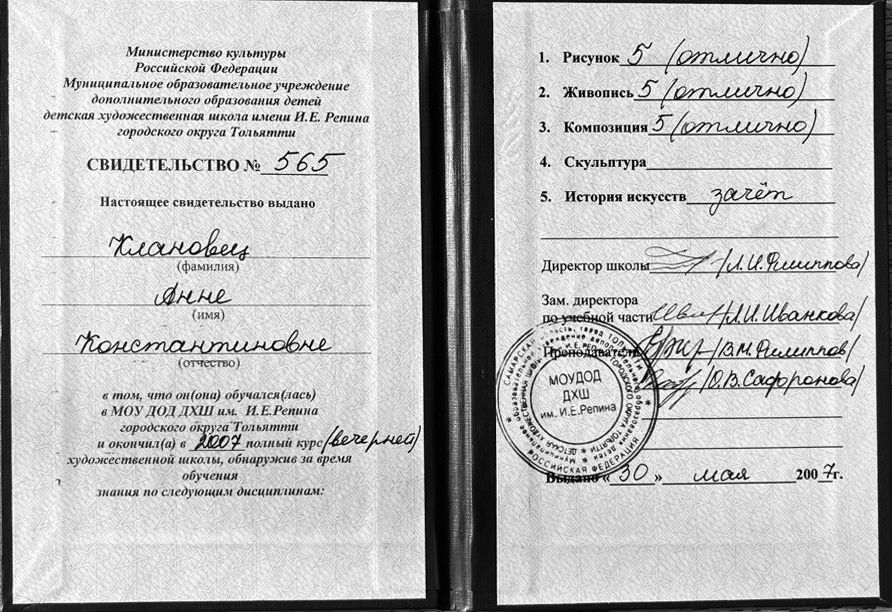 Министерство культуры
Российской Федерации
Муниципальное образовательное учреждение
дополнительного образования детей
детская художественная школа имени И.Е. Репина
городского округа Тольятти
СВИДЕТЕЛЬСТВО № 565
Настоящее свидетельство выдано
Клановец
(фамилия)
Анне
(имя)
Константиновне
(отчество)
в том, что он(она) обучался(лась)
в МОУ ДОД ДХШ им. И.Е.Репина
городского округа Тольятти
и окончил(а) в 2007 полный курс (вечерней)
художественной школы, обнаружив за время
обучения
знания по следующим дисциплинам:
1. Рисунок 5 (отлично)
2. Живопись 5 (отлично)
3. Композиция 5 (отлично)
4. Скульптура
5. История искусств зачёт
Директор школы /Л.И.Филиппова/
Зам. директора
по учебной части /Л.И.Иванкова/
Преподаватель /В.М.Филиппов/
/О.В.Сафронова/
МОУДОД
ДХШ
им. И.Е.Репина
РОССИЙСКАЯ ФЕДЕРАЦИЯ
Выдано «30» мая 2007г.